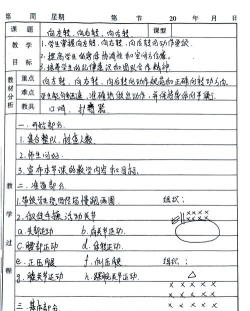 第 周 星期 第 节 20 年 月 日
课题 向左转、向右转、向后转 课型
教学目标
1.学生掌握向左转、向右转、向后转的动作要领.
2.提高学生的身体协调性和空间方位感.
3.培养学生的纪律意识和团队合作精神
教材分析
重点 向左转、向右转、向后转的动作规范和正确转动方向.
难点
教具 口哨、
教学过程
一、开始部分.
1.集合整队,
2.师生问好.
3.宣布本节课的教学内容和目标.
二、准备部分.
1.带领学生绕田径场慢跑两圈. 组织:
2.做徒手操,活动关节
a.头部运动 b.肩关节运动.
c.腰部运动 d.体转运动.
e.正压腿 f.侧压腿 组织:
g.膝关节运动 h.踝腕关节运动.
三、基本部分